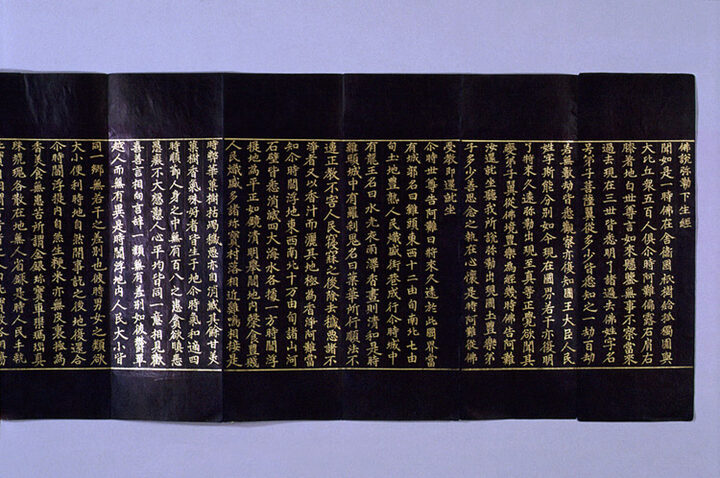 佛說弥勒下生經
聞如是一時佛在舍衛國祇樹給孤獨園與
大比丘衆五百人俱尒時阿難偏露右肩右
膝著地白世尊言如來懸鑒無事不察當來
過去現在三世皆悉明了諸過去佛姓字名
弟子菩薩翼從多少皆悉知之一劫百劫
若無數劫皆悉觀察亦復知國王大臣人民
姓字斯能分別如今現在國界若干亦復明
了將來久遠弥勒出現至真等正覺欲聞其
變弟子翼從佛境豊樂為經幾時佛告阿難
汝還就坐聽我所說弥勒出現國土豊樂弟
子多少善思念之執在心懷是時阿難從佛
受教即還就坐
尒時世尊告阿難曰將來久遠於此國界當
有城郭名曰雞頭東西十二由旬南北七由
旬土地豊熟人民熾盛街巷成行尒時城中
有龍王名曰水光夜雨澤香晝則清和是時
雞頭城中有羅剎鬼名曰葉華所行順法不
違正教不害人民寢寐之後除去穢惡諸不
淨者又以香汁而灑其地極為香淨阿難當
知尒時閻浮地東西南北十万由旬諸山河
石壁皆悉消滅四大海水各據一方時閻浮
提地為平正如鏡清明舉閻浮地內榖食豊賤
人民熾盛多諸珎寶村落相近雞鳴相接是
時弊華菓樹枯竭穢惡亦自消滅其餘甘美
菓樹香氣殊好者皆生于地尒時氣和適四
時順節人身之中無有百八之患貪欲瞋恚
愚癡不大慇懃人心平均皆同一意相見歡
喜善言相向言辭一類無有差別如彼欝單
越人而無有異是時閻浮地內人民大小皆
同一嚮無若干之差別也彼時男女之類欲
大小便利時地自然開事訖之後地便還合
尒時閻浮提內自然生粳米亦無皮裹極為
香美食無患苦所謂金銀珎寶車璖馬瑙真
珠琥珀各散在地無人省錄是時人民手執